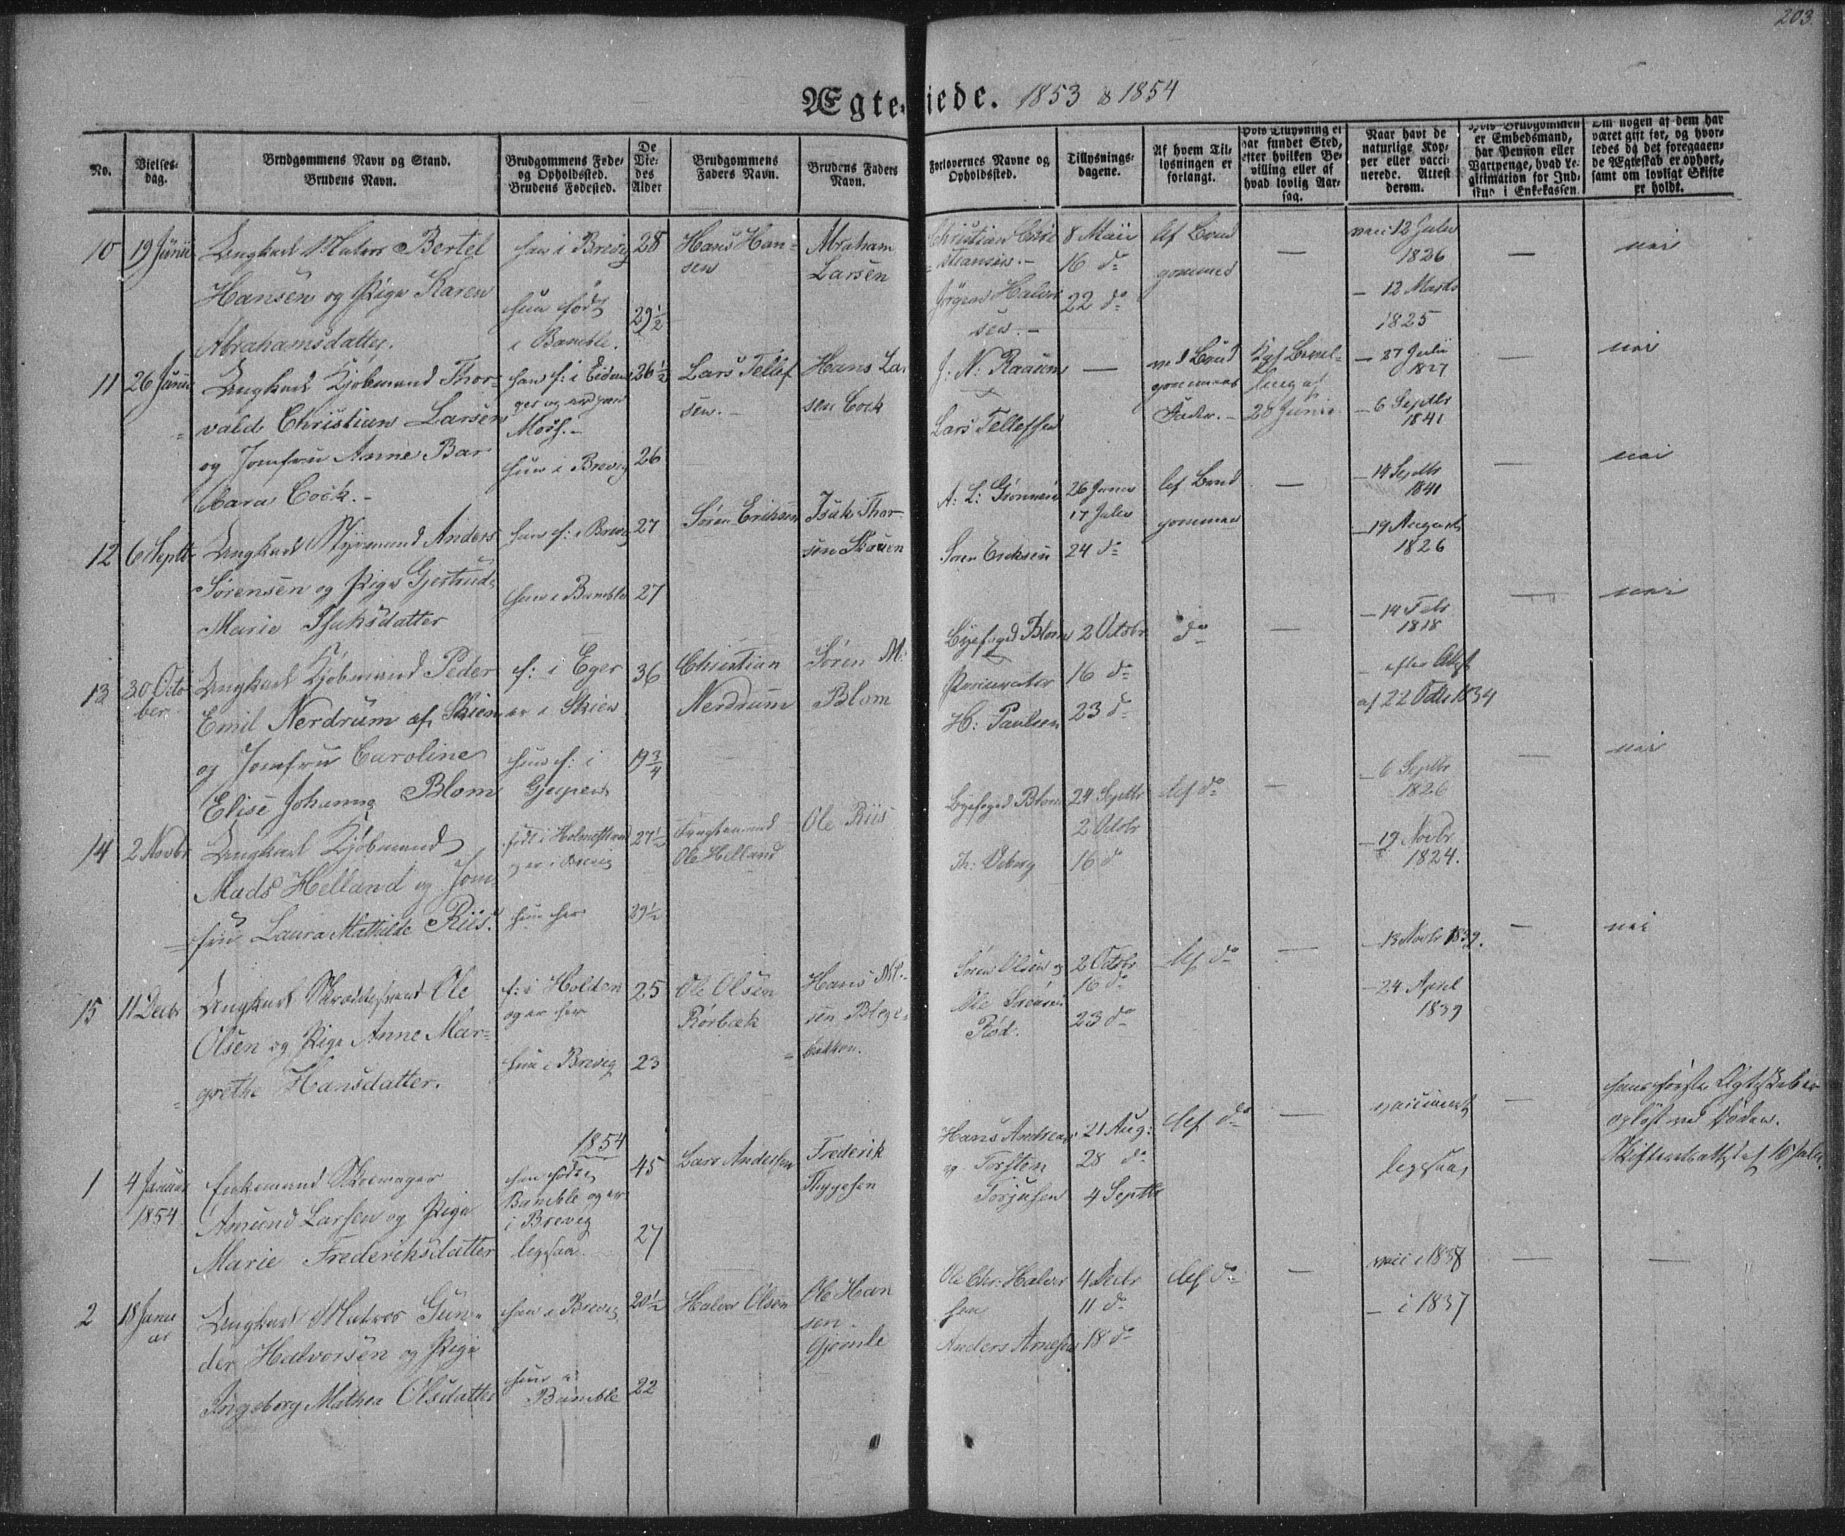 203.
Ægteviede. 1853 & 1854
No.
Vielses-
dag.
Brudgommens Navn og Stand.
Brudens Navn.
Brudgommens Føde-
og Opholdssted.
Brudens Fødested.
De
Vie-
des
Alder
Brudgommens
Faders Navn.
Brudens Faders
Navn.
Forlovernes Navne og
Opholdssted.
Tillysnings-
dagene.
Af hvem Til-
lysningen er
forlangt.
Hvis Tillysning ei
har fundet Sted,
efter hvilken Be-
villing eller af
hvad lovlig Aar-
sag.
Naar havt de
naturlige Kop-
per eller vacci-
nerede. Attest
derom.
Hvis Brudgommen
er Embedsmand,
har Pension eller
Vartpenge, hvad Le-
gitimation for Ind-
skud i Enkekassen.
Om nogen af dem har
været gift før, og hvor-
ledes da det foregaaen-
de Ægteskab er ophørt,
samt om lovligt Skifte
er holdt.
10
19 Junii
Ungkarl Matros Bertel
Hansen og Pige Karen
Abrahamsdatter.
han i Brevig
hun født
i Bamble.
28
29 1/2
Hans Han-
sen
Abraham
Larsen
Christian Chri
stiansen.-
Jørgen Halvor
sen.-
8 Maii
16 do
22 do
Af Brud
gommen
—
vacc 12 Julii
1826
— 12 Marts
1825
—
nei
11
26 Junii
Ungkarl Kjøbmand Thor-
vald Christian Larsen
og Jomfru Anne Bar
bara Cock.-
han f: i Eidan
ger og er paa
Moss.-
hun i Brevig
26 1/2
26
Lars Tellef
sen.-
Hans La
sen Cock
J: N: Raaum
Lars Tellefsen
—
ved Brud
gommens
Fader.-
Kgl Bevil-
ling af
20 Junii
— 27 Julii
1827
— 6 Septbr
1841
nei
12
6 Septbr
Ungkarl Styrmand Anders
Sørensen og Pige Gjertrud
Marie Isaksdatter
han f: i Brevig
hun i Bamble
27
27
Søren Eriksen
Isak Thor-
sen Skauen
A: L: Grønnen
Søren Eriksen
26 Junii
17 Julii
24 do
Af Brud
gommen
—
— 14 Septbr
1841
— 19 August
1826
—
nei
13
30 Octo
ber
Ungkarl Kjøbmand Peder
Emil Nerdrum af Skien
og Jomfru Caroline
Elise Johanna Blom
f: i Eger
er i Skien
hun f: i
Gjerpen
36
19 3/4
Christian
Nerdrum
Søren M:
Blom
Byefoged Blom
Procurator
H: Paulsen
2 Octobr
16 do
23 do
do
—
— 14 Febr
1818
— efter Attest
af 22 Octbr 1834
—
nei
14
2 Novbr
Ungkarl Kjøbmand
Mads Helland og Jom-
fru Laura Mathilde Riis.
født i Holmestrand
og er i Brevig
hun her
27 1/2
29 1/2
Ole Helland
Ole Riis
Byefoged Blom
24 Septbr
2 Octobr
16 do
Af do
—
— 6 Septbr
1826
— 19 Novbr
1824.
—
nei
15
11 Decbr
Ungkarl Skræddersvend Ole
Olsen og Pige Anne Mar-
grethe Hansdatter.
f: i Holden
og er her
hun i Brevig
25
23
Ole Olsen
Rørbæk
Hans Nil-
sen Blege-
bakken.
Søren Olsen og
Ole
Rød.
2 Octobr
16 do
23 do
Af do
—
— 13 Novbr 1839.
— 24 April
1839
—
nei
1854
1
4 Januar
1854
Enkemand Skomager
Amund Larsen og Pige
Marie Frederiksdatter
han født i
Bamble og er
i Brevig
ligesaa
45
27
Lars Andersen
Frederik
Thygesen
Hans Andreas
Torsten
Torjusen
21 Aug:
28 do
4 Septbr
Af do
—
vaccineret
ligesaa
—
hans første Ægteskab er
opløst ved Døden.
Skifteattest af 16 Julii
2
18 Janu
ar
Ungkarl Matros Gun-
der Halvorsen og Pige
Ingeborg Mathea Olsdatter
han i Brevig
hun i
Bamble
20 1/2
22
Halvor Olsen
Ole Han
sen
Gjømle
Ole Chr: Halvor
sen
Anders Arnesen
4 Decbr
11 do
18 do
Af do
—
vacc i 1838
— i 1837
—
—